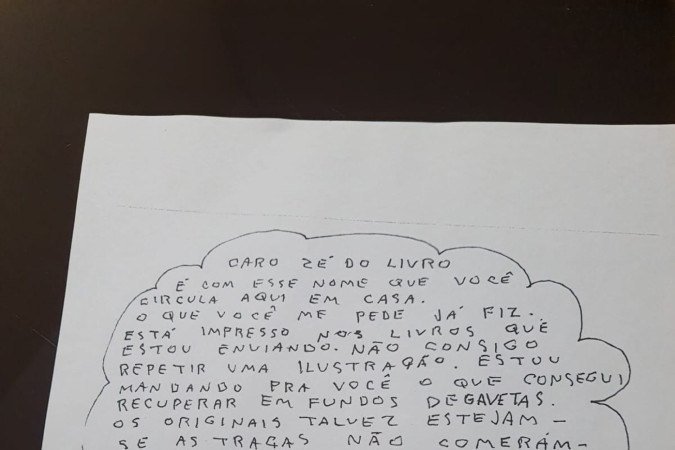 CARO ZÉ DO LIVRO
É COM ESSE NOME QUE VOCÊ
CIRCULA AQUI EM CASA.
O QUE VOCÊ ME PEDE JÁ FIZ.
ESTÁ IMPRESSO NOS LIVROS QUE
ESTOU ENVIANDO. NÃO CONSIGO
REPETIR UMA ILUSTRAÇÃO. ESTOU
MANDANDO PRA VOCÊ O QUE CONSEGUI
RECUPERAR EM FUNDOS DE GAVETAS.
OS ORIGINAIS TALVEZ ESTEJAM —
SE AS TRAÇAS NÃO COMERÁM —